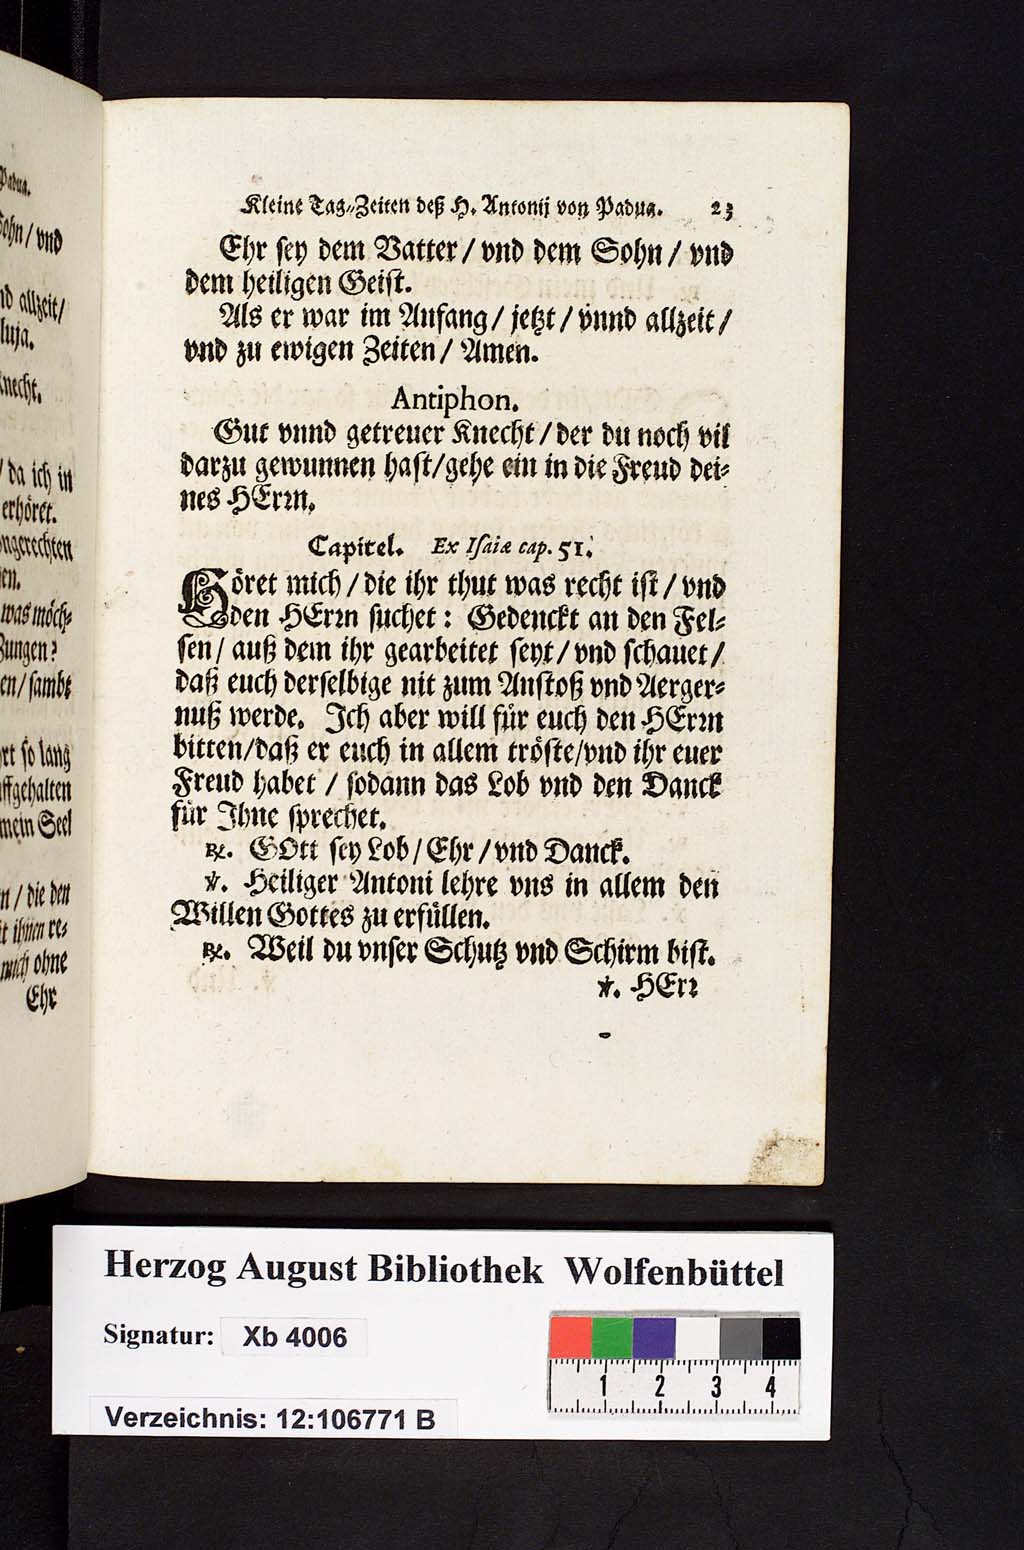 Padua.
Sohn / vnd
allzeit /
luja.
Knecht.
/ da ich in
erhöret.
vngerechten
was möch-
Zungen?
en / sambt
so lang
auffgehalten
mein Seel
/ die den
mit ihnen re-
mich ohne
Ehr
Kleine Tag-Zeiten deß H. Antonij von Padua. 23
Ehr sey dem Vatter / vnd dem Sohn / vnd
dem heiligen Geist.
Als er war im Anfang / jetzt / vnnd allzeit /
vnd zu ewigen Zeiten / Amen.
Antiphon.
Gut vnnd getreuer Knecht / der du noch vil
darzu gewunnen hast / gehe ein in die Freud dei-
nes HErrn.
Capitel. Ex Isaiæ cap. 51.
Höret mich / die ihr thut was recht ist / vnd
den HErrn suchet : Gedenckt an den Fel-
sen / auß dem ihr gearbeitet seyt / vnd schauet /
daß euch derselbige nit zum Anstoß vnd Aerger-
nuß werde. Ich aber will für euch den HErrn
bitten / daß er euch in allem tröste / vnd ihr euer
Freud habet / sodann das Lob vnd den Danck
für Ihne sprechet.
℟. GOtt sey Lob / Ehr / vnd Danck.
℣. Heiliger Antoni lehre vns in allem den
Willen Gottes zu erfüllen.
℟. Weil du vnser Schutz vnd Schirm bist.
℣. HErr
Herzog August Bibliothek Wolfenbüttel
Signatur: Xb 4006
1 2 3 4
Verzeichnis: 12:106771 B